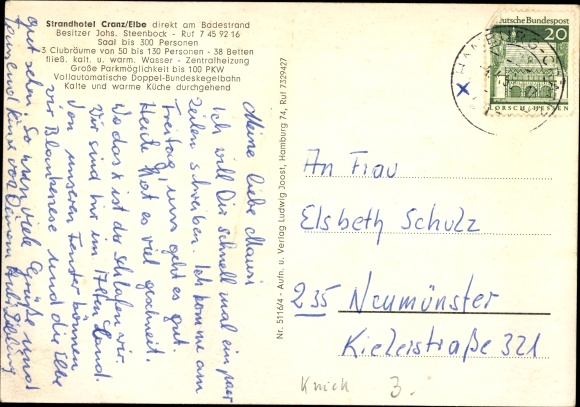 Strandhotel Cranz/Elbe direkt am Badestrand
Besitzer Johs. Steenbock - Ruf 7 45 92 16
Saal bis 300 Personen
3 Clubräume von 50 bis 130 Personen - 38 Betten
fließ. kalt. u. warm. Wasser - Zentralheizung
Große Parkmöglichkeit bis 100 PKW
Vollautomatische Doppel-Bundeskegelbahn
Kalte und warme Küche durchgehend
Meine liebe Mausi
Ich will Dir schnell mal ein paar
Zeilen schreiben. Ich komme am
Freitag, uns geht es gut.
Heute hat es viel geschneit.
Wo das x ist da schlafen wir.
Wir sind hier im Alten Land.
Von unseren Fenster können
wir Blankenese und die Elbe
gut sehn. So nun viele Grüße und
tausend Küsse von Deinem
Nr. 5116/4 - Aufn. u. Verlag Ludwig Joost, Hamburg 74, Ruf 7329427
Deutsche Bundespost
20
LORSCH/HESSEN
HAMBURG-CRANZ
x
An Frau
Elsbeth Schulz
235 Neumünster
Kielerstraße 321
3.